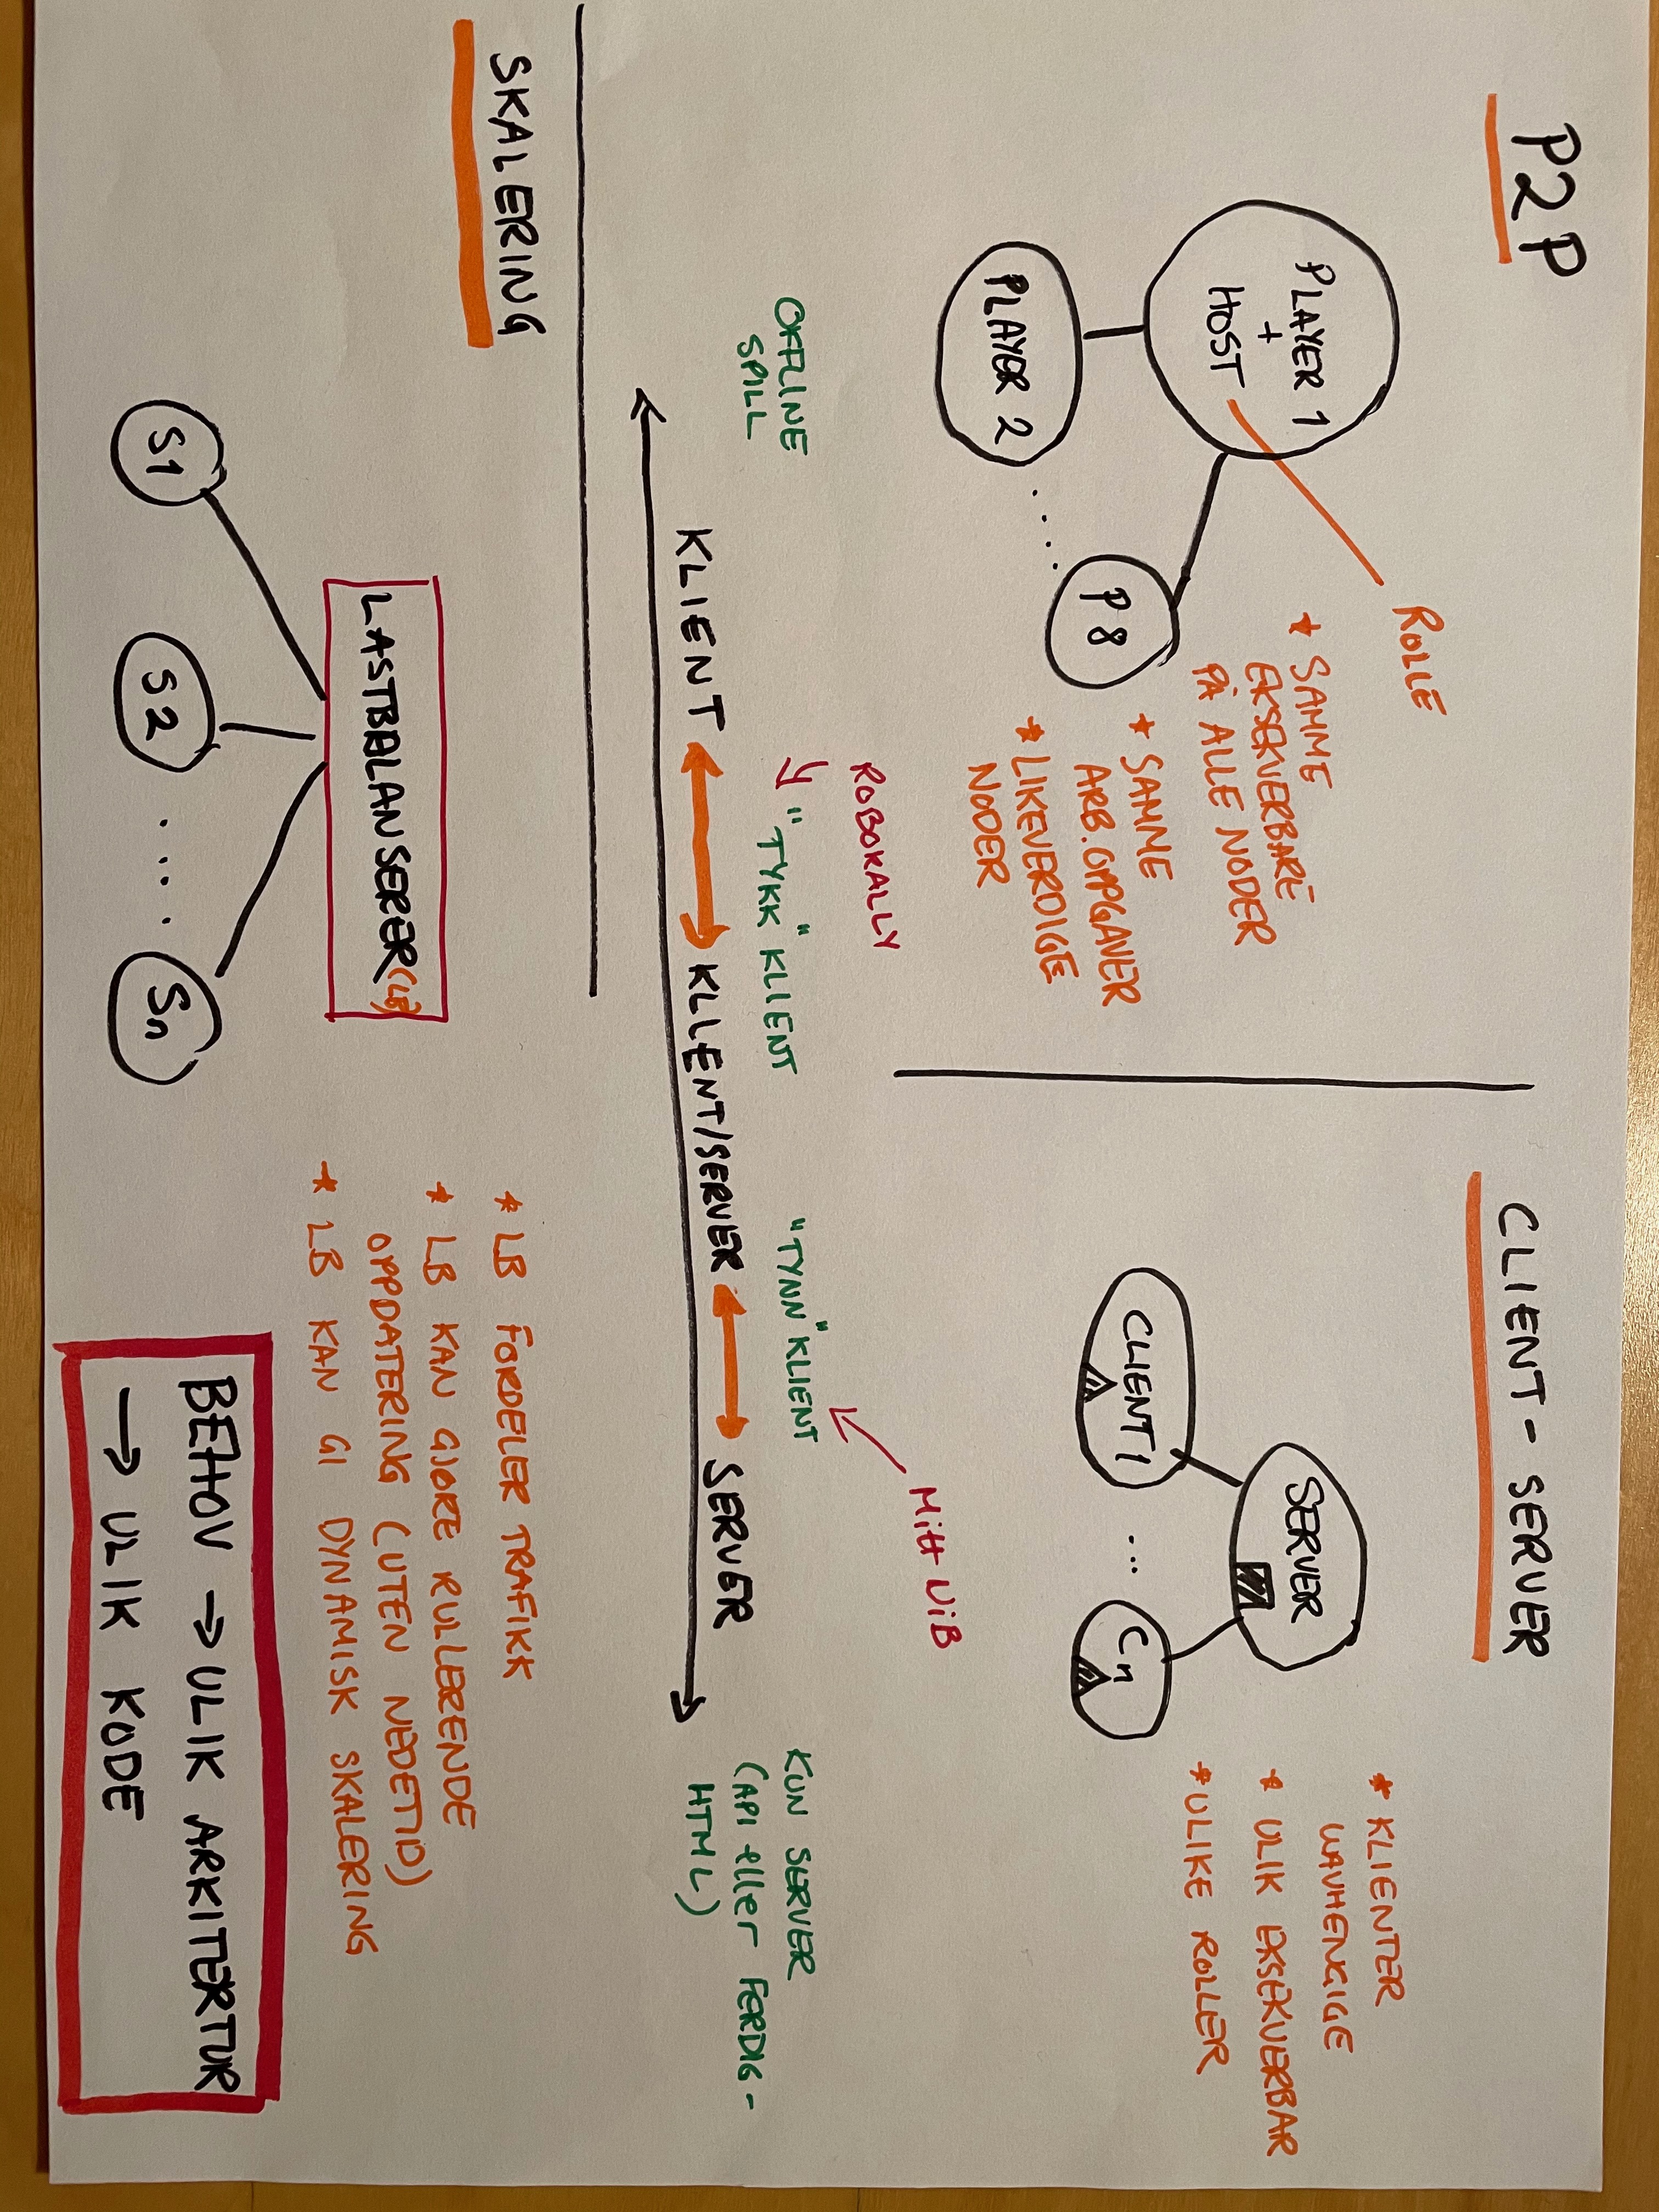 P2P
PLAYER 1
+
HOST
PLAYER 2
....
P8
ROLLE
* SAMME
EKSEKVERBARE
PÅ ALLE NODER
* SAMME
ARB. OPPGAVER
* LIKEVERDIGE
NODER
CLIENT - SERVER
SERVER
CLIENT 1
...
Cn
* KLIENTER
UAVHENGIGE
* ULIK EKSEKVERBAR
* ULIKE ROLLER
ROBORALLY
Mitt UiB
OFFLINE
SPILL
"TYKK" KLIENT
"TYNN" KLIENT
KUN SERVER
(API eller FERDIG-
HTML)
KLIENT
KLIENT/SERVER
SERVER
SKALERING
LASTBALANSERER (LB)
S1
S2
....
Sn
* LB FORDELER TRAFIKK
* LB KAN GJØRE RULLERENDE
OPPDATERING (UTEN NEDETID)
* LB KAN GI DYNAMISK SKALERING
BEHOV → ULIK ARKITERTUR
→ ULIK KODE